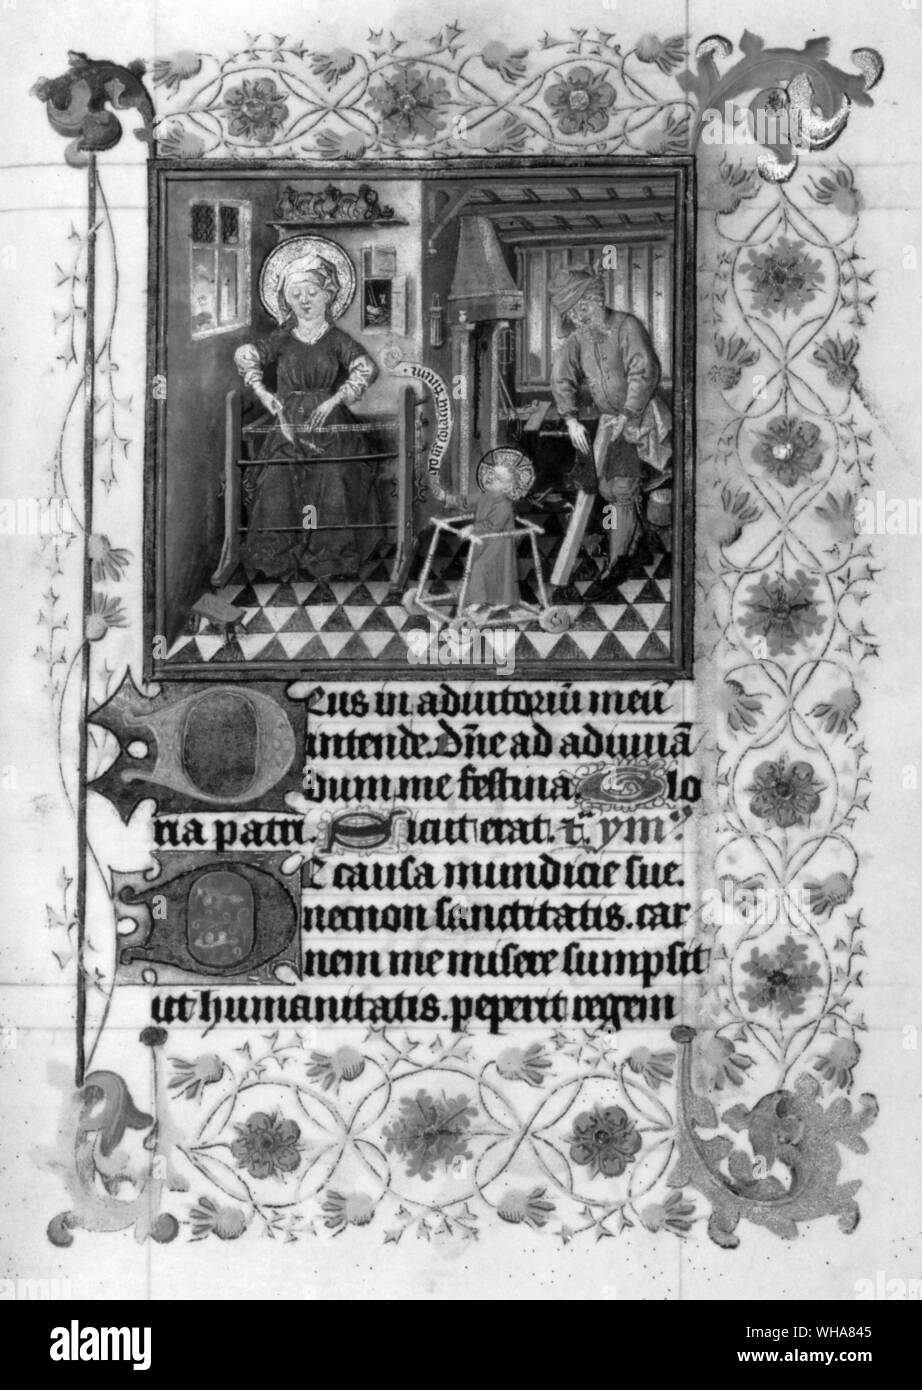 Deus in adiutoriū meū
intende. Dn̄e ad adiuuā
dum me festina. Glo
ria patri. Sicut erat. ym⁹
De causa mundicie sue.
necnon sanctitatis. car
nem me misere sumpsit
ut humanitatis. peperit regem
alamy
alamy
Image ID: WHA845
www.alamy.com